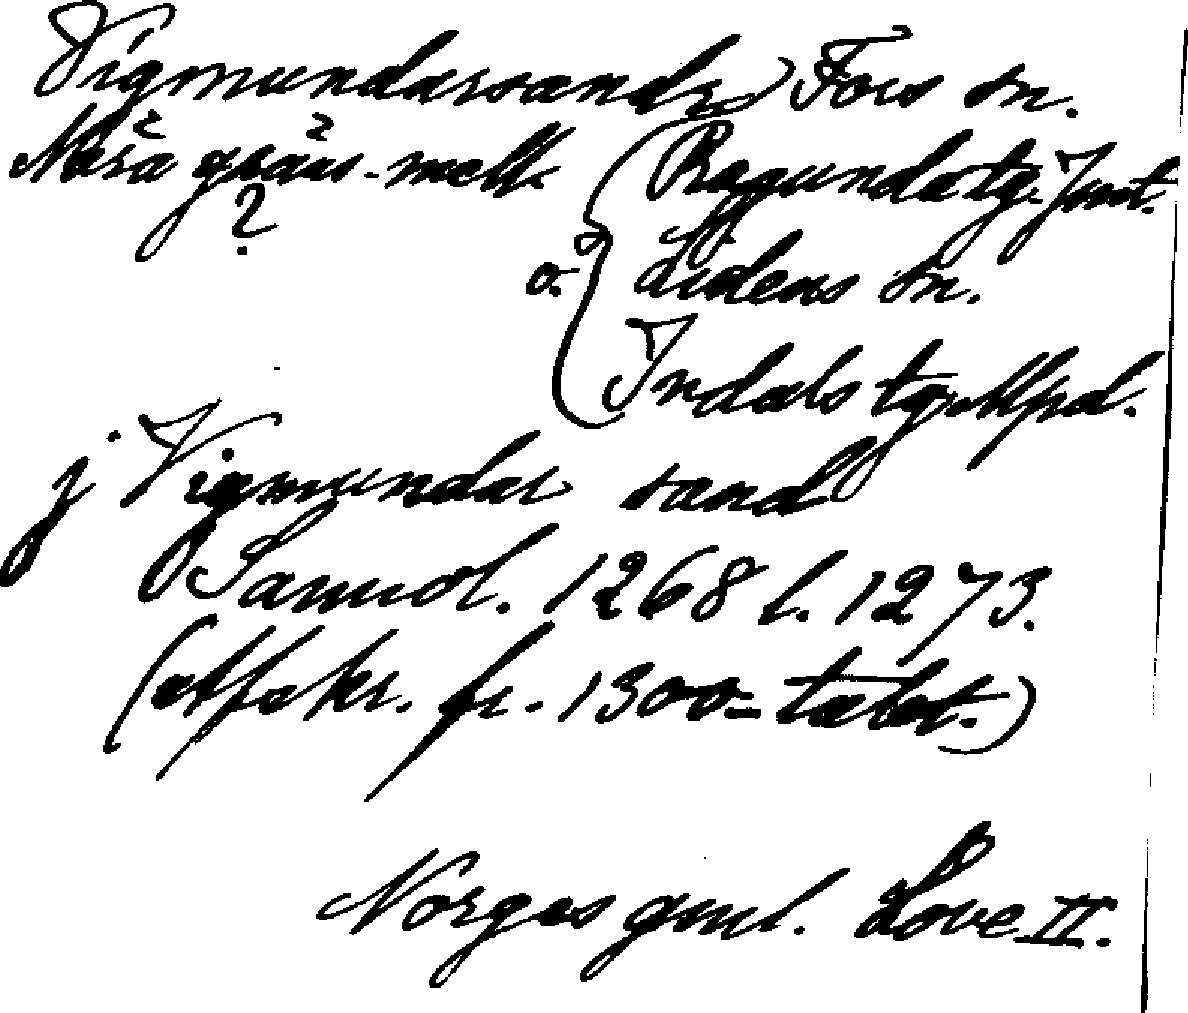 Vigmundarsandr, Fors sn.
Nära gräns mell. { Ragunda tg. Jmt.
?
o. { Lidens sn.
Indals tg. Mpd.
j Vigmundar sand
Samuol. 1268 l. 1273.
(afskr. fr. 1300-talet.)
Norges gml. Love II.